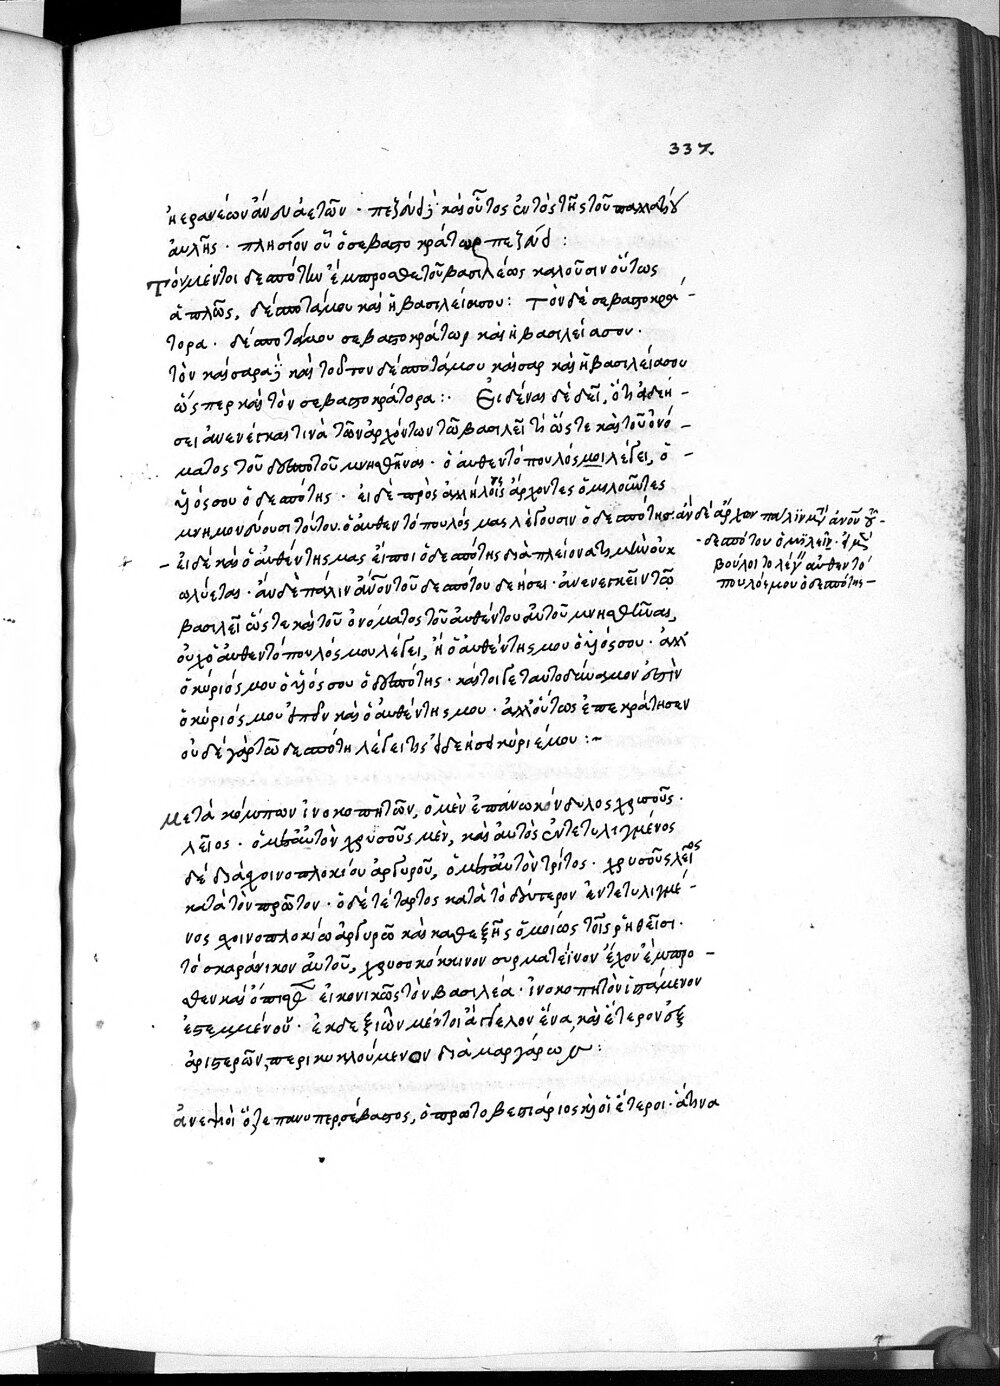 337
ἠερανέων ἄνευ ἀετῶν · πεζεύει καὶ οὗτος ἐντὸς τῆς τοῦ παλατίου
αὐλῆς · πλησίον οὗ ὁ σεβαστοκράτωρ πεζεύει :
Τὸν μέντοι δεσπότην ἔμπροσθε τοῦ βασιλέως καλοῦσιν οὕτως
ἁπλῶς, δέσποτά μου καὶ ἡ βασιλεία σου : Τὸν δὲ σεβαστοκρά-
τορα · δέσποτά μου σεβαστοκράτωρ καὶ ἡ βασιλεία σου ·
τὸν καίσαρα καὶ τοῦτον δέσποτά μου καῖσαρ καὶ ἡ βασιλεία σου
ὥσπερ καὶ τὸν σεβαστοκράτορα : Εἰδέναι δὲ δεῖ, ὅτι εἰ δεή-
σει ἀνενέγκαι τινὰ τῶν ἀρχόντων τῷ βασιλεῖ τι ὥστε καὶ τοῦ ὀνό-
ματος τοῦ δεσπότου μνησθῆναι · ὁ αὐθεντόπουλός μου λέγει, ὁ
υἱός σου ὁ δεσπότης · εἰ δὲ πρὸς ἀλλήλους οἱ ἄρχοντες ὁμιλοῦντες
μνημονεύουσι τούτου · ὁ αὐθεντόπουλός μας λέγουσιν ὁ δεσπότης · ἂν δὲ ἄρχων πάλιν μετὰ ἀνθρώπου τοῦ
δεσπότου ὁμιλεῖ · εἰ μὲν
βούλοιτο λέγει αὐθεντό
πουλός μου ὁ δεσπότης –
– εἰ δὲ καὶ ὁ αὐθέντης μας εἴποι ὁ δεσπότης διὰ πλείονα τιμὴν οὐ κ
ωλύεται · ἂν δὲ πάλιν ἄνθρωπον τοῦ δεσπότου δεήσει · ἀνενεγκεῖν τῷ
βασιλεῖ ὥστε καὶ τοῦ ὀνόματος τοῦ αὐθέντου αὐτοῦ μνησθῆναι,
οὐχ ὁ αὐθεντόπουλός μου λέγει, ἢ ὁ αὐθέντης μου ὁ υἱός σου · ἀλλ'
ὁ κύριός μου ὁ υἱός σου ὁ δεσπότης · καίτοιγε ταυτοδύναμον ἐστὶν
ὁ κύριός μου εἰπεῖν καὶ ὁ αὐθέντης μου · ἀλλ' οὕτως ἐπεκράτησεν
οὐδὲ γὰρ τῷ δεσπότῃ λέγει τις εἰ δεήσει κύριέ μου : –
Μετὰ κόμπων ἰνοκοπητῶν, ὁ μὲν ἐπάνω κόνδυλος χρυσοῦς ·
λεῖος · ὁ μετ' αὐτὸν χρυσοῦς μὲν, καὶ αὐτὸς ἐντετυλιγμένος
δὲ διὰ σχοινοπλοκίου ἀργυροῦ, ὁ μετ' αὐτὸν τρίτος · χρυσοῦς λεῖος
κατὰ τὸν πρῶτον · ὁ δὲ τέταρτος κατὰ τὸ δεύτερον ἐντετυλιγμέ-
νος σχοινοπλοκίῳ ἀργυρῷ καὶ καθεξῆς ὁμοίως τοῖς ῥηθεῖσι ·
τὸ σκαράνικον αὐτοῦ, χρυσοκόκκινον συρματέϊνον ἔχον ἔμπρο-
σθεν καὶ ὄπισθεν εἰκονικῶς τὸν βασιλέα · ἰνοκοπητὸν ἱστάμενον
ἐστεμμένον · ἐκ δεξιῶν μέντοι ἄγγελον ἕνα, καὶ ἕτερον ἐξ
ἀριστερῶν, περικυκλούμενον διὰ μαργάρων :
ἀνεψιοὶ ὅ τε πανυπερσέβαστος, ὁ πρωτοβεστιάριος καὶ οἱ ἕτεροι · ἅτινα